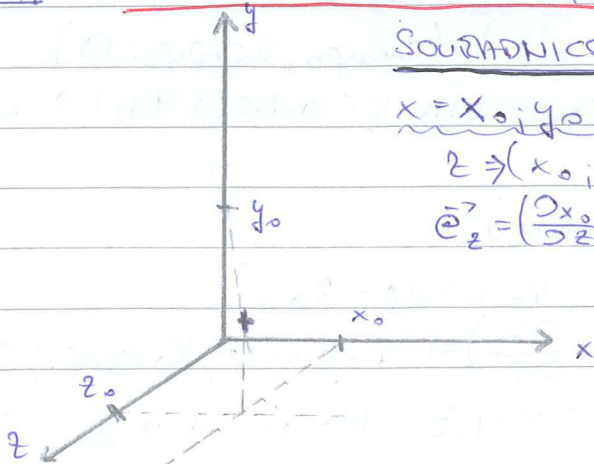 y
SOUŘADNICO
x = x₀; y₀
z ⇒ (x₀;
e⃗_z = (∂x₀/∂z
y₀
x₀
x
z₀
z